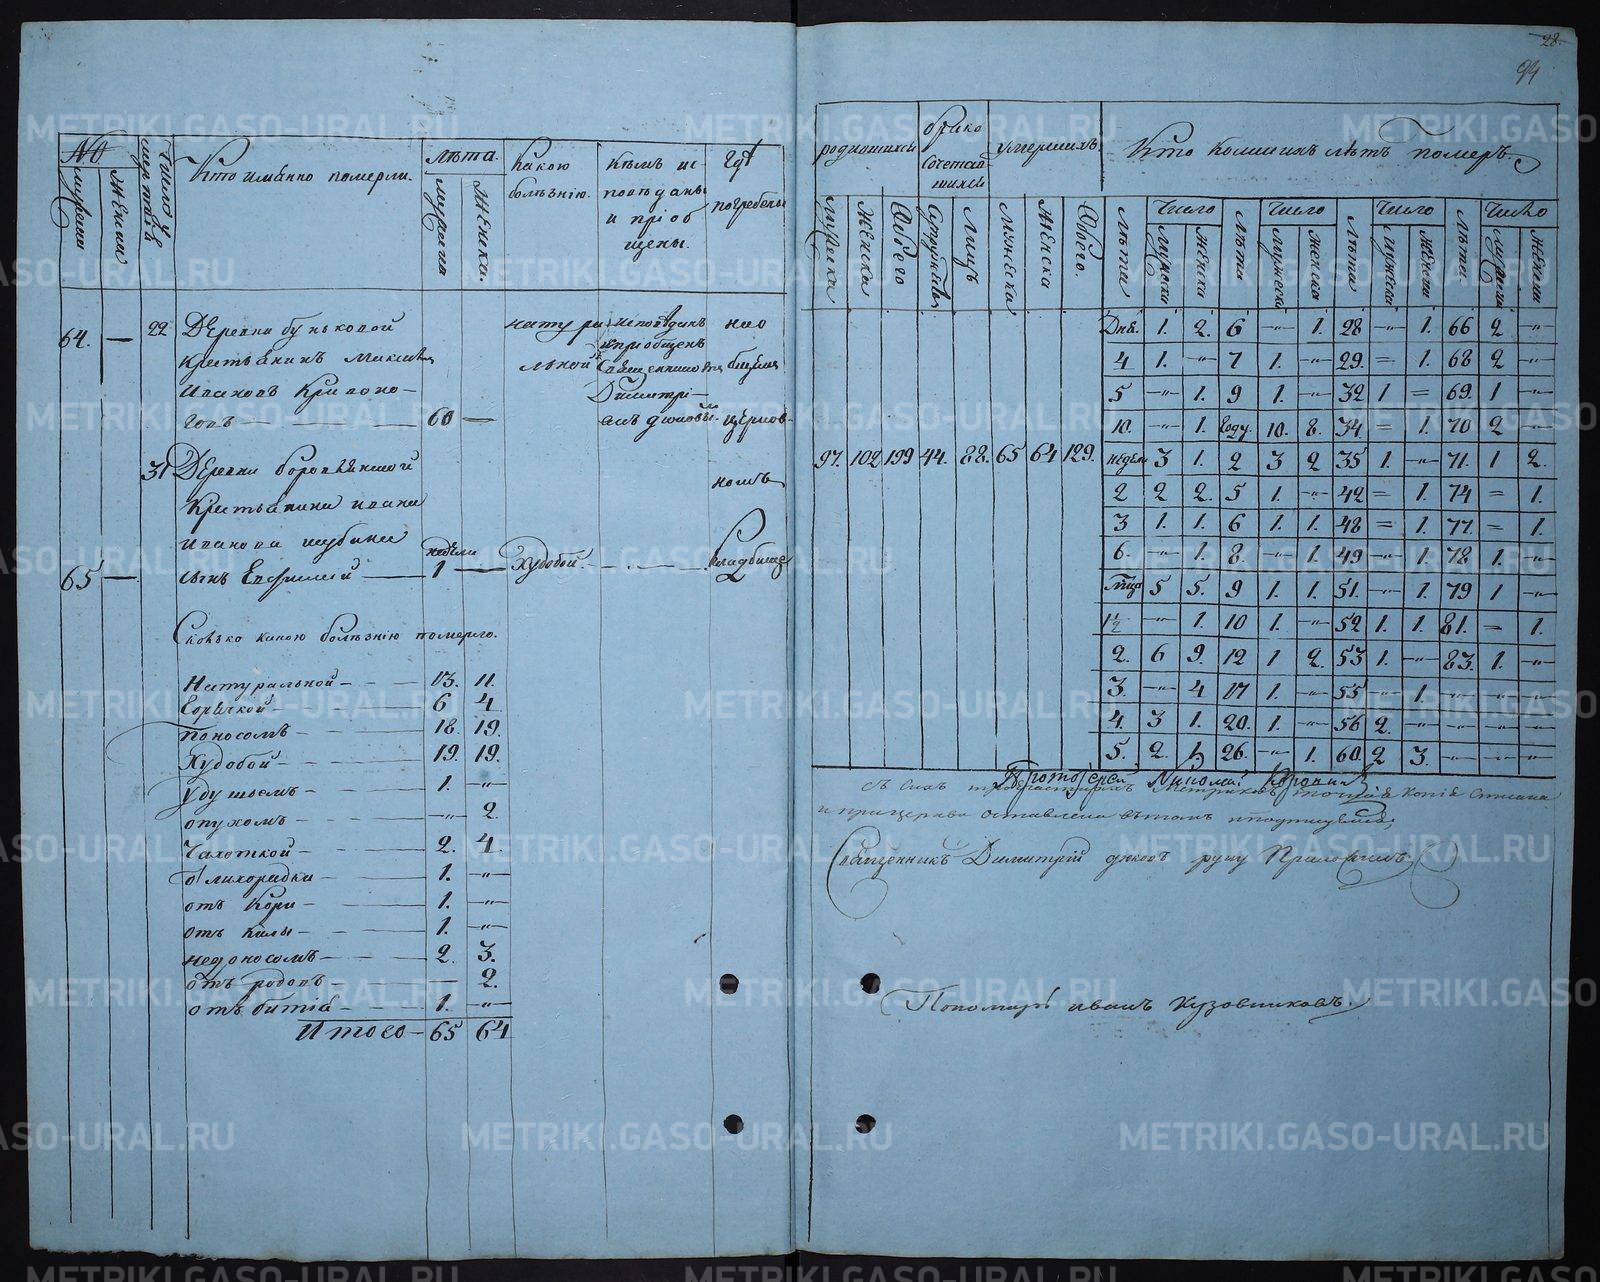 28.
94
№
мужеска
женски
Число умертвiя
Кто имянно померли.
лѣта.
мужеска
женска.
какою болѣзнію.
кѣмъ ис-
повѣданы
и пріоб
щены.
гдѣ
погребены
64. — 22 Деревни буньковой
крестьянинъ Максимъ
Ивановъ Кривоно-
говъ — 60 —
натура
льной
исповѣданъ
и пріобщенъ
священникомъ
Димитрі-
емъ
на о
церков-
номъ
кладбище
31 Деревни боровлянской
Крестьянина ивана
иванова шубина
65 — сынъ Евфимей — недели 1 — Худобой
Сколько какою болѣзнію померло.
Натуральной — 13. 11.
Горячкой — 6 4
Поносомъ — 18. 19.
Худобой — 19. 19.
Удушьемъ — 1. -"-
опухомъ — -"- 2.
Чахоткой — 2. 4.
о лихорадки — 1. -"-
отъ Кори — 1. -"-
отъ килы — 1. -"-
недоносомъ — 2. 3.
отъ родовъ — 2.
отъ битiя — 1. -"-
Итого — 65 64
родившихся
брако
сочетав
шихся
умершихъ.
Кто Коликихъ лѣтъ померъ.
мужеска
женска
Обоего
Супружествъ
Лицъ
Мужеска
Женска
Обоего.
Лѣта
Число
мужеска
женска
Лѣта
Число
мужеска
женска
Лѣта
Число
мужеска
женска
Лѣта
Число
мужеска
женска
97. 102 199 44. 88. 65 64 129.
Дня. 1. 2. 6 -"- 1. 28 -"- 1. 66 2 -"-
4 1. -"- 7 1. -"- 29. = 1. 68 2 -"-
5 -"- 1. 9 1. -"- 32 1 = 69. 1 -"-
10. -"- 1. Году. 10. 8. 34 = 1. 70 2 -"-
недели 3 1. 2 3 2 35 1. -"- 71. 1 2.
2 2 2. 5 1. -"- 42 = 1. 74 = 1.
3 1. 1. 6 1. 1. 48 = 1. 77. = 1.
6. -"- 1. 8 -"- 1. 49 -"- 1. 78 1. -"-
мѣсяца 5 5. 9 1. 1. 51. -"- 1. 79 1 -"-
1½ -"- 1. 10 1. -"- 52 1. 1. 81. = 1.
2. 6 9. 12 1 2. 53 1. -"- 83. 1. -"-
3. -"- 4 17 1. -"- 55 -"- 1. -"- -"- -"-
4. 3 1. 20. 1. -"- 56 2. -"- -"- -"- -"-
5. 2. 1. 26. -"- 1. 60. 2 3. -"- -"- -"-
Протоіерей Николай
съ сихъ метрикъ точная Копiя Списана
и при церкви оставлена въ томъ и подпищемся
Священникъ Димитрій руку Приложилъ.
Пономарь иванъ Кузовниковъ.
METRIKI.GASO-URAL.RU